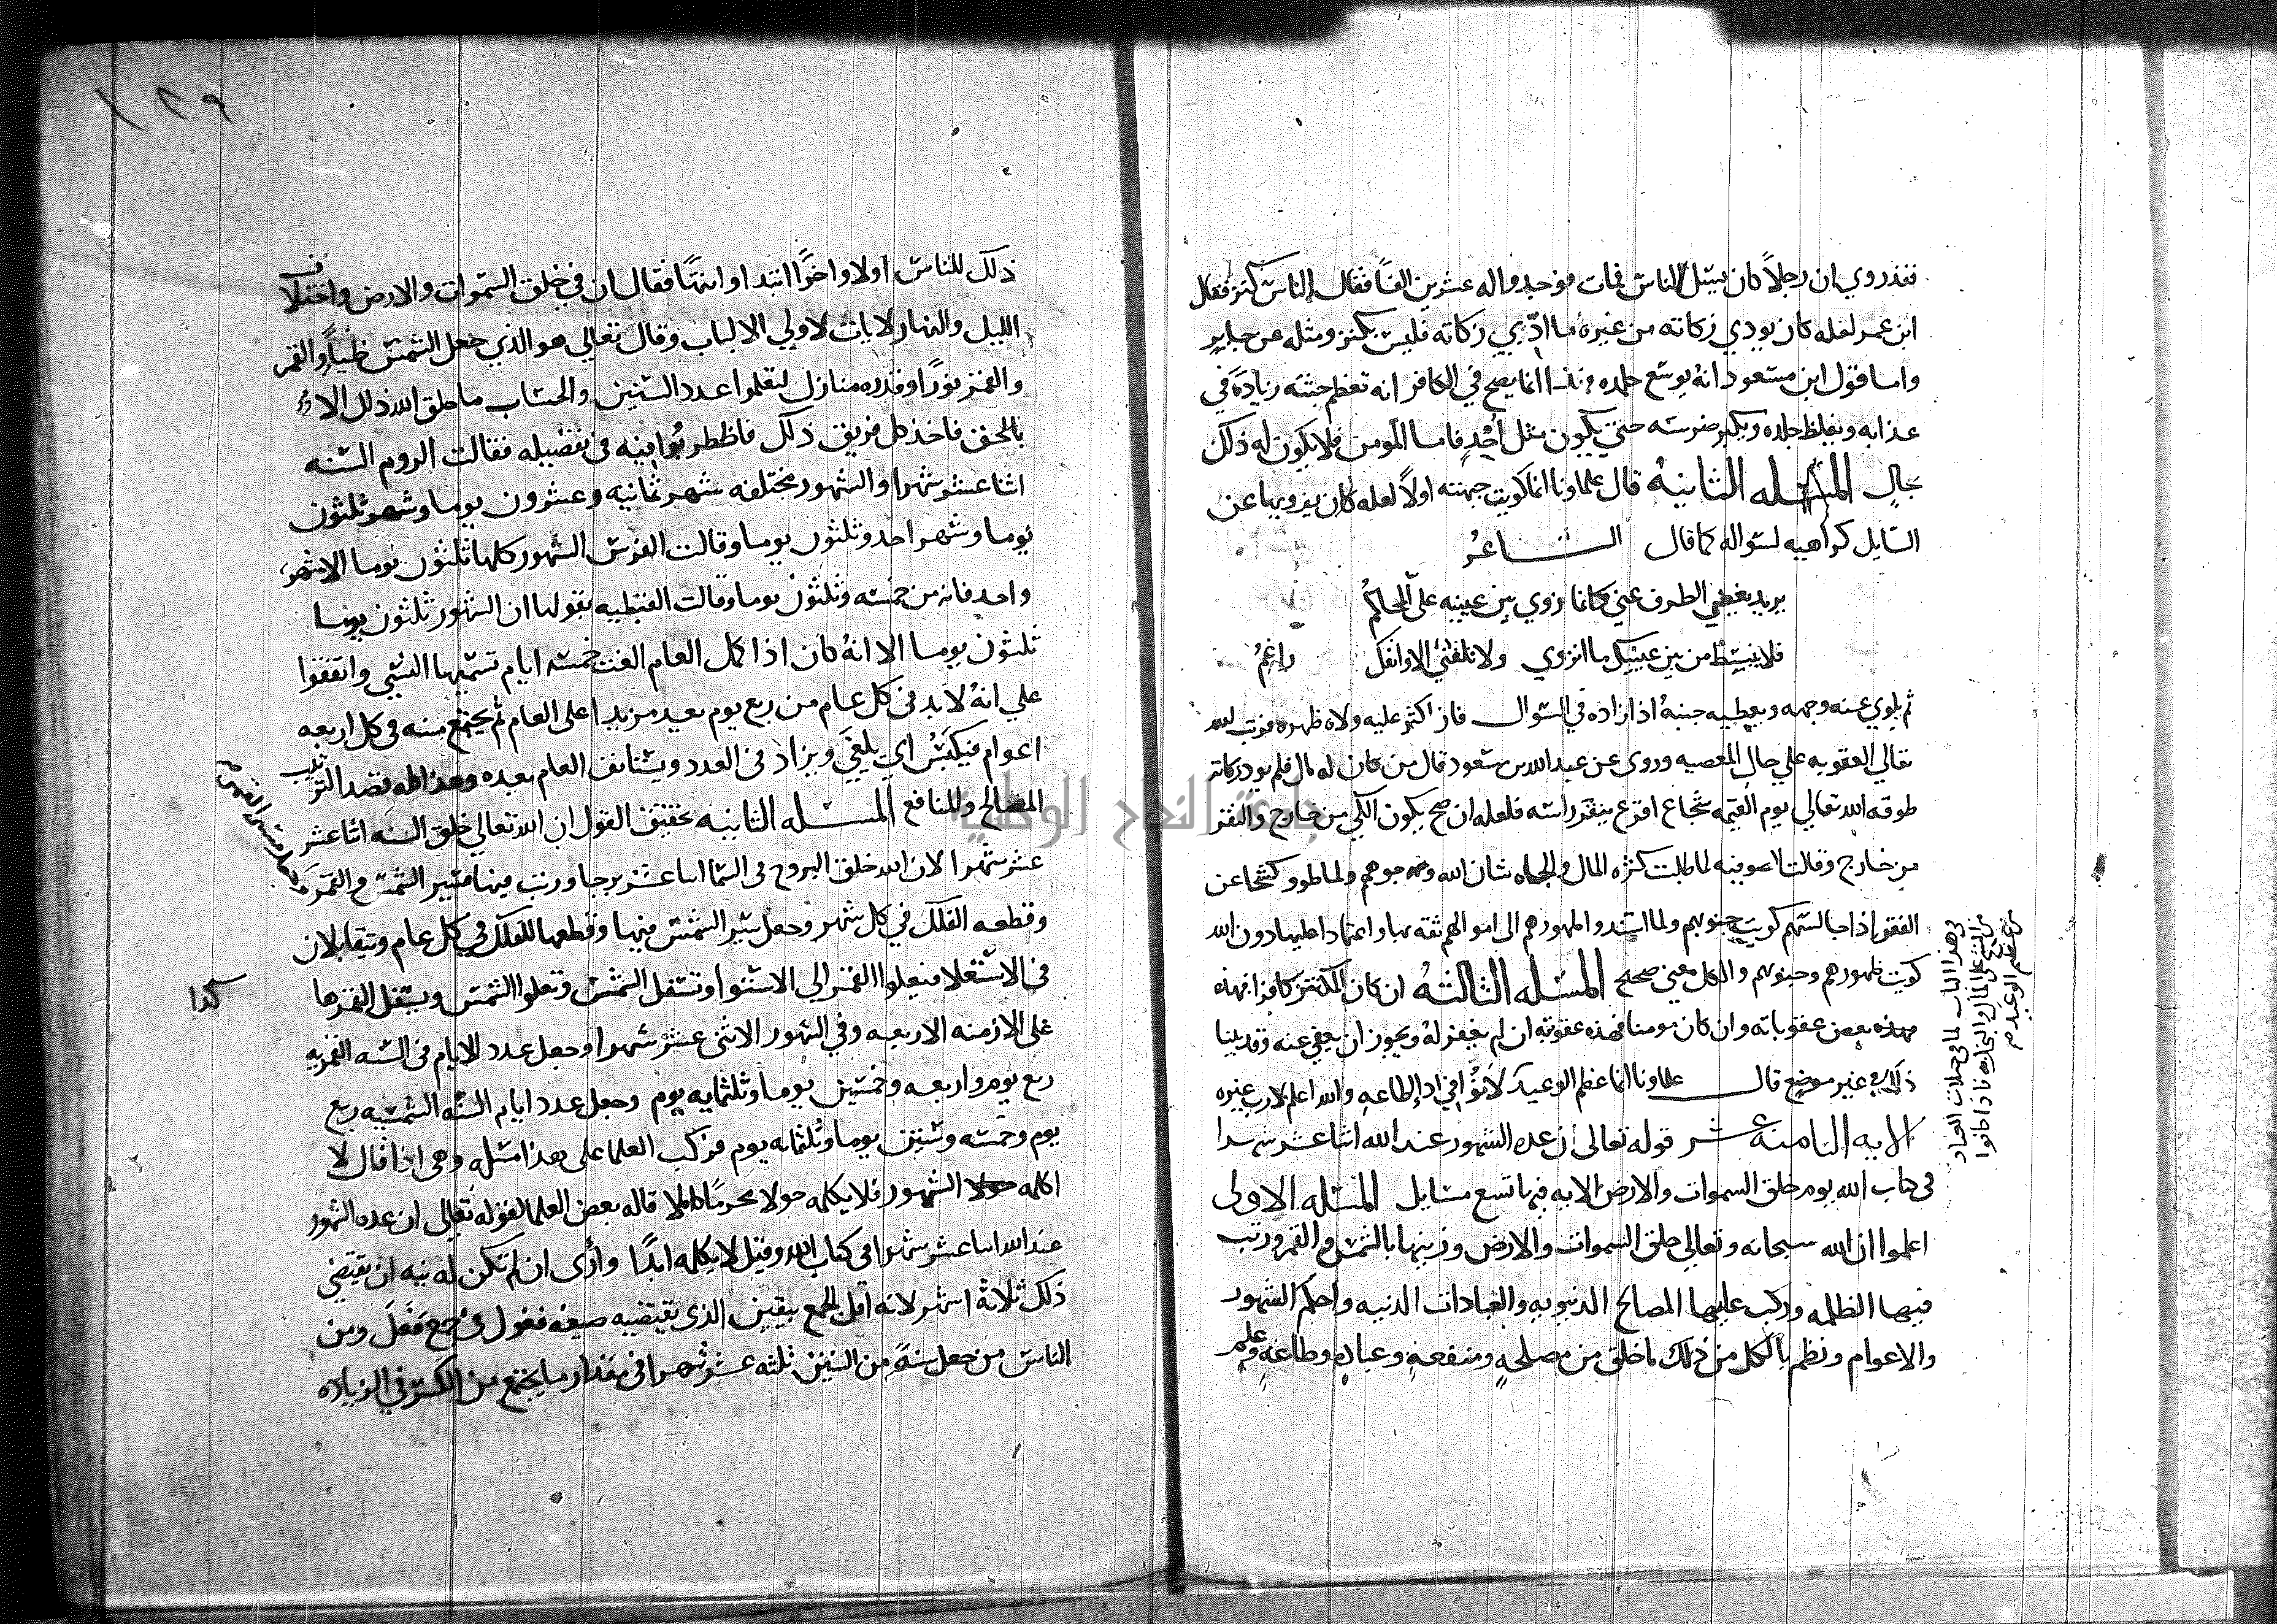 فقد روي ان رجلاً كان يسئل الناس فمات فوجد واله عشرين الفاً فقال الناس كنز فقال
ابن عمر لعله كان يودي زكاته من غيره ما ادّي زكاته فليس بكنز ومثله عن جابر
واما قول ابن مسعود انه يوسّع جلده فهذا انما يصح في الكافر انه تعظم جثته زيادة في
عذابه ويغلظ جلده ويكبر ضرسه حتي يكون مثل اُحُدٍ فاما المومن فلا يكون له ذلك
بحالٍ المسئله الثانية قال علماونا انما كويت جبهته اولاً لعله كان يزويها عن
السّايل كراهيه لسواله كما قال الشاعرُ
يريد يغضي الطرف عني كانما زوي بين عينيه عليّ المحاجمُ
فلا ينبسط من بين عينيك ما انزوي ولا تلقني الا وانفك راغِمُ
ثم يلوي عنه وجهه ويعطيه جنبهُ اذا زاده في السّوال فان اكثر عليه ولاه ظهره فرتب الله
تعالي العقوبه علي حال المعصيه وروي عن عبد الله بن مسعود قال من كان له مال فلم يود زكاته
طوقه الله تعالي يوم القيمه شجاع اقرع ينقر راسه فلعله ان صح يكون الكي من خارج والنقز
من خارج وقالت الصوفيه لما طلبت كثره المال و الجاه شان الله وجوههم ولما طووا كشحا عن
الفقر اذا جالسهم كويت جنوبهم ولما اسندوا ظهورهم الى اموالهم ثقه بها واعتمادا عليها دون الله
كويت ظهورهم وجنوبهم والكل معنى صحيح المسئله الثالثهُ ان كان المكتنز كافرا فهذه
فهذه بعض عقوباته وان كان مومنا فهذه عقوبته ان لم يغفر لهُ ويجوز ان يعفي عنه وقد بينا
ذلك في غير موضع قال علماونا انما عظم الوعيد والله اعلم لا رب غيره
الايه الثامنه عشر قوله تعالى ان عده الشهور عند الله اثنا عشر شهرا
في كتاب الله يوم خلق السموات والارض الايه فيها تسع مسايل المسئله الاولى
اعلموا ان الله سبحانه وتعالي خلق السموات والارض وزينها بالشمس والقمر ورتب
فيها الظلمه وركب عليها المصالح الدنيويه والعبادات الدنيه واحكم الشهور
والاعوام ونظم بالكل من ذلك ما خلق من مصلحهٍ ومنفعهٍ وعباده وطاعهٍ وعلم
في هذا الباب لما في جبلات العباد
من الشح علي المال والبخل به فاذا خافوا
من عظيم الوعيد م
١٢٩
ذلك للناس اولا واخراً ابتدا وانتهاً فقال ان في خلق السّموات والارض واختلاف
الليل والنهار لايات لاولي الالباب وقال تعالي هو الذي جعل الشمس ضياً والقمر
والقمر نورًا وقدره منازل لتعلموا عدد السّنين والحسَاب ما خلق الله ذلك الا
بالحق فاخذ كل فريق ذلك فاظطربوا فيه في تفضيله فقالت الروم السّنه
اثنا عشر شهرا والشهور مختلفه شهر ثمانيه وعشرون يوما وشهر ثلثون
يوما وشهر احد وثلثون يوما وقالت الفرس الشهور كلها ثلثون يوما الا شهر
واحد فانه من خمسّه وثلثون يوما وقالت القبطيه بقولها ان الشهور ثلثون يوما
ثلثون يوما الا انهُ كان اذا كمل العام الغت خمسه ايام تسّميها النسّي واتفقوا
علي انهُ لا بد في كل عام من ربع يوم يعيد مزيدا على العام ثم يجتمع منه في كل اربعه
اعوام فيكبسُ اي يلغَي ويزاد في العدد ويستانف العام بعده وهذا كله قصد الترتيب
المصالح والمنافع المسئله الثانيه تحقيق القول ان الله تعالي خلق السنه اثنا عشر
عشر شهرا لان الله خلق البروج في السّما اثنا عشر برجا ورتب فيها مسير الشمس والقمر
وقطعه الفلك في كل شهر وجعل سير الشمس فيها وقطعها للفلك في كل عام ويتقابلان
في الاستعلا فيعلوا القمر الي الاستوا وتسّفل الشمسّ وتعلوا الشمس ويسفل القمر ها
كذا
علي الازمنه الاربعه وفي الشهور الاثني عشر شهرا وجعل عدد الايام في السّنه القمريه
ربع يوم واربعه وخمسين يوما وثلثمايه يوم وجعل عدد ايام السّنه الشمسّيه ربع
يوم وخمسه وستين يوما وثلثمايه يوم فركب العلما علي هذا مسئله وهي اذا قال لا
اكلمه الشهور فلا يكلمه حولا محرمًا كاملا قاله بعض العلما لقوله تعالي ان عده الشهور
عند الله اثنا عشر شهرا في كتاب الله وقيل لا يكلمه ابدًا وأرى ان لم تكن له نيه ان يقتضي
ذلك ثلاثة اشهر لانه اقل الجمع بيقين الذي يقتضيه صيغه فعول في جمع فعل ومن
الناس من جعل سنةً من السنين ثلثه عشر شهرا في مقدار ما يجتمع من الكسر في الزياده